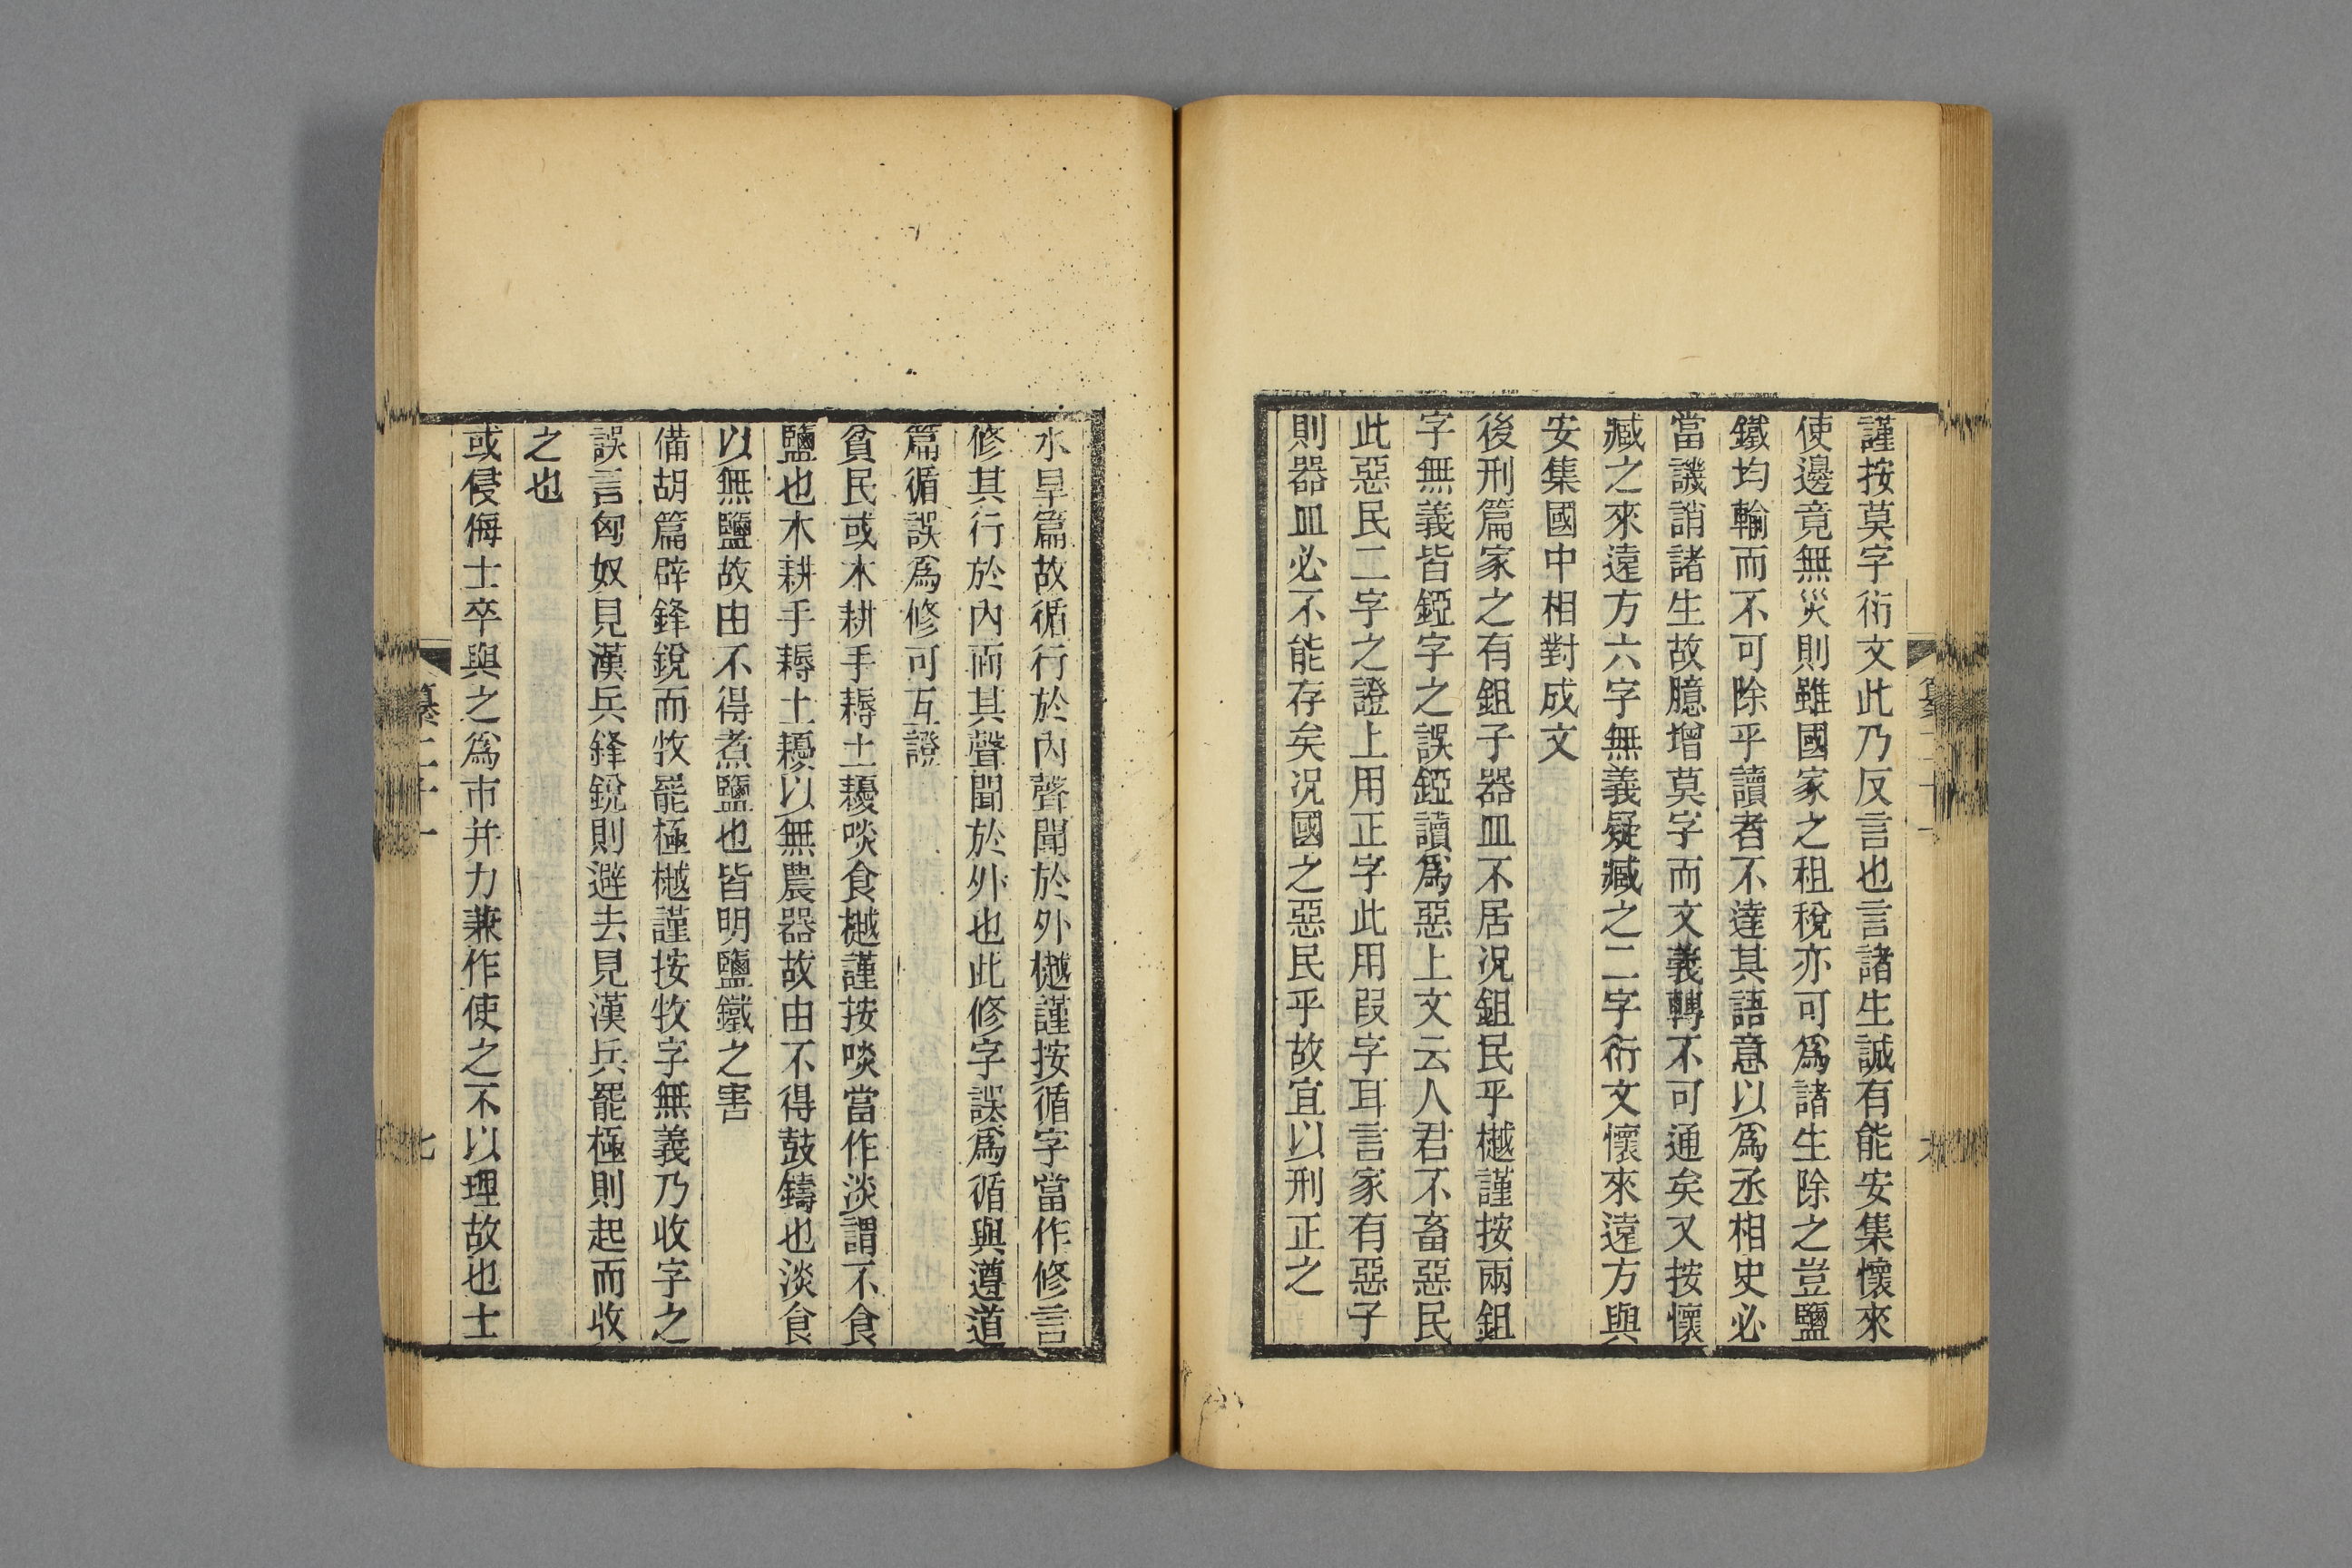 謹按莫字衍文此乃反言也言諸生誠有能安集懷來
使邊竟無災則雖國家之租稅亦可爲諸生除之豈鹽
鐵均輸而不可除乎讀者不達其語意以爲丞相史必
當譏誚諸生故臆增莫字而文義轉不可通矣又按懷
臧之來遠方六字無義疑臧之二字衍文懷來遠方與
安集國中相對成文
後刑篇家之有鉏子器皿不居況鉏民乎樾謹按兩鉏
字無義皆錏字之誤錏讀爲惡上文云人君不畜惡民
此惡民二字之證上用正字此用叚字耳言家有惡子
則器皿必不能存矣况國之惡民乎故宜以刑正之
水旱篇故循行於內聲聞於外樾謹按循字當作修言
修其行於內而其聲聞於外也此修字誤爲循與遵道
篇循誤爲修可互證
貧民或木耕手耨土耰啖食樾謹按啖當作淡謂不食
鹽也木耕手耨土耰以無農器故由不得鼓鑄也淡食
以無鹽故由不得煮鹽也皆明鹽鐵之害
備胡篇辟鋒銳而牧罷極樾謹按牧字無義乃收字之
誤言匈奴見漢兵鋒銳則避去見漢兵罷極則起而收
之也
或侵侮士卒與之爲市并力兼作使之不以理故也士
纂二十一
七